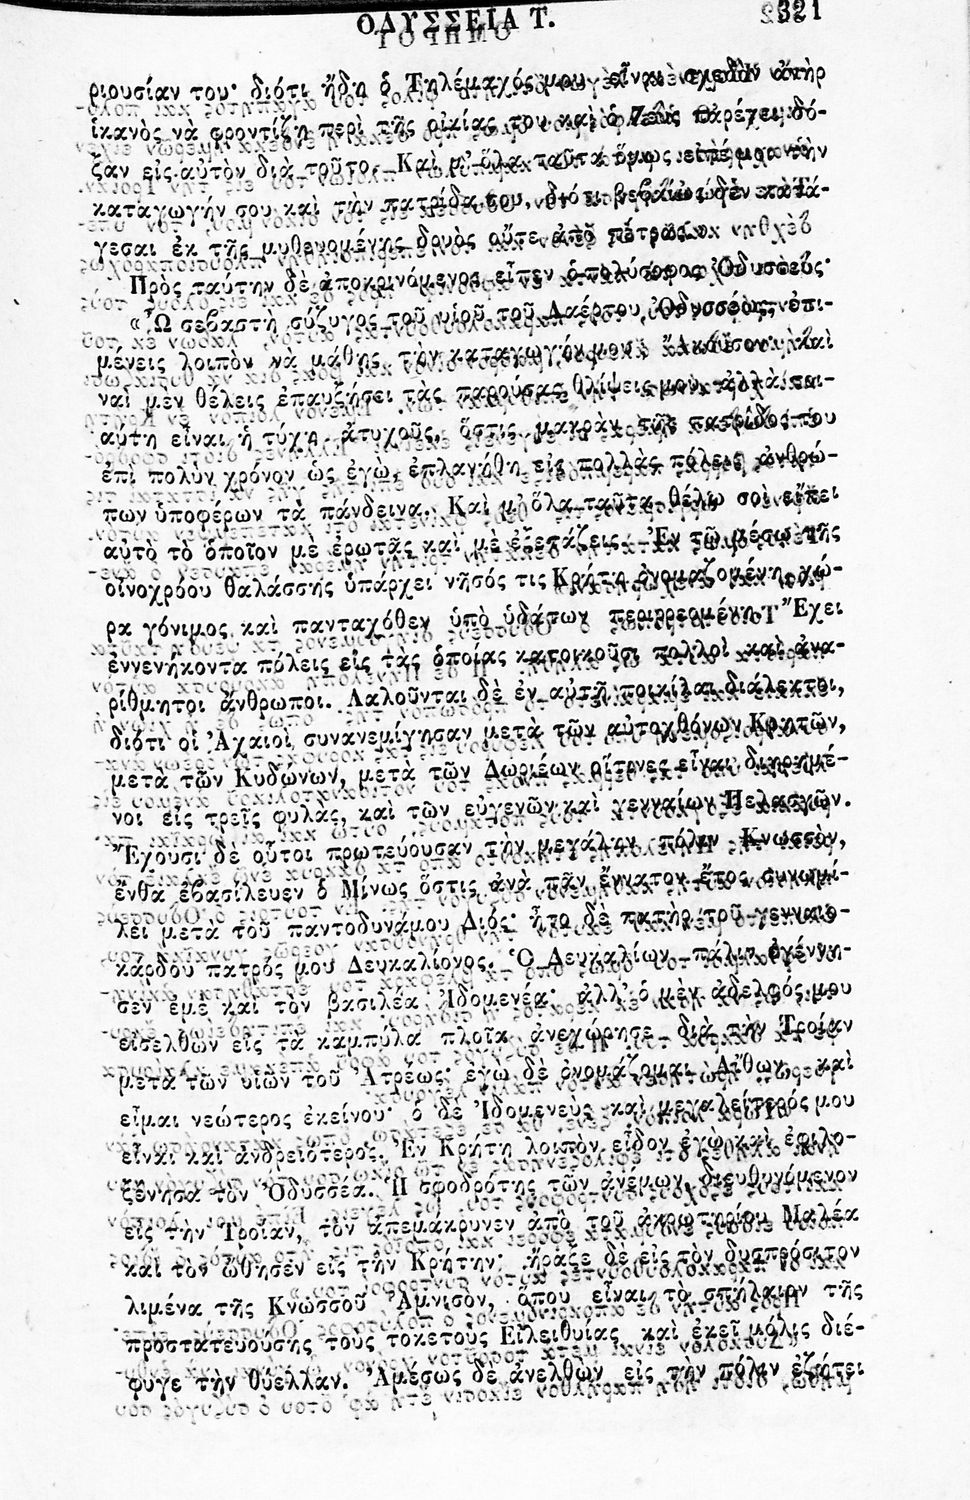 ΟΔΥΣΣΕΙΑ Τ. 321
ριουσίαν του· διότι ἤδη ὁ Τηλέμαχός μου εἶναι σχεδὸν ἀνὴρ
ἱκανὸς νὰ φροντίζῃ περὶ τῆς οἰκίας του καὶ ὁ Ζεὺς παρέχει δό-
ξαν εἰς αὐτὸν διὰ τοῦτο. Καὶ μ' ὅλα ταῦτα ὅμως εἰπέ μοι τὴν
καταγωγήν σου καὶ τὴν πατρίδα σου, διότι βεβαίως δὲν κατά-
γεσαι ἐκ τῆς μυθευομένης δρυὸς οὔτε ἀπὸ πέτρας.»
Πρὸς ταύτην δὲ ἀποκρινόμενος εἶπεν ὁ πολύσοφος Ὀδυσσεύς·
«Ὦ σεβαστὴ σύζυγος τοῦ υἱοῦ τοῦ Λαέρτου, Ὀδυσσέως, ἐπι-
μένεις λοιπὸν νὰ μάθῃς τὴν καταγωγήν μου; Ἄκουσον· καὶ
ναὶ μὲν θέλεις ἐπαυξήσει τὰς παρούσας θλίψεις μου, ἀλλὰ τοι-
αύτη εἶναι ἡ τύχη ἀτυχοῦς, ὅστις μακρὰν τῆς πατρίδος του
ἐπὶ πολὺν χρόνον ὡς ἐγώ, ἐπλανήθη εἰς πολλὰς πόλεις ἀνθρώ-
πων ὑποφέρων τὰ πάνδεινα. Καὶ μ' ὅλα ταῦτα θέλω σοὶ εἴπει
αὐτὸ τὸ ὁποῖον μὲ ἐρωτᾷς καὶ μὲ ἐξετάζεις. Ἐν τῷ μέσῳ τῆς
οἰνοχρόου θαλάσσης ὑπάρχει νῆσός τις Κρήτη ὀνομαζομένη, χώ-
ρα γόνιμος καὶ πανταχόθεν ὑπὸ ὑδάτων περιρρεομένη. Ἔχει
ἐννενήκοντα πόλεις εἰς τὰς ὁποίας κατοικοῦσι πολλοὶ καὶ ἀνα-
ρίθμητοι ἄνθρωποι. Λαλοῦνται δὲ ἐν αὐτῇ ποικίλαι διάλεκτοι,
διότι οἱ Ἀχαιοὶ συνανεμίγησαν μετὰ τῶν αὐτοχθόνων Κρητῶν,
μετὰ τῶν Κυδώνων, μετὰ τῶν Δωριέων οἵτινες εἶναι διῃρημέ-
νοι εἰς τρεῖς φυλάς, καὶ τῶν εὐγενῶν καὶ γενναίων Πελασγῶν.
Ἔχουσι δὲ οὗτοι πρωτεύουσαν τὴν μεγάλην πόλιν Κνωσσόν,
ἔνθα ἐβασίλευεν ὁ Μίνως ὅστις ἀνὰ πᾶν ἔννατον ἔτος συνωμί-
λει μετὰ τοῦ παντοδυνάμου Διός· ἦτο δὲ πατὴρ τοῦ γενναιο-
κάρδου πατρός μου Δευκαλίονος. Ὁ Δευκαλίων πάλιν ἐγέννη-
σεν ἐμὲ καὶ τὸν βασιλέα Ἰδομενέα· ἀλλ' ὁ μὲν ἀδελφός μου
εἰσελθὼν εἰς τὰ καμπύλα πλοῖα ἀνεχώρησε διὰ τὴν Τροίαν
μετὰ τῶν υἱῶν τοῦ Ἀτρέως· ἐγὼ δὲ ὀνομάζομαι Αἴθων, καὶ
εἶμαι νεώτερος ἐκείνου· ὁ δὲ Ἰδομενεὺς καὶ μεγαλείτερός μου
εἶναι καὶ ἀνδρειότερος. Ἐν Κρήτῃ λοιπὸν εἶδον ἐγὼ καὶ ἐφιλο-
ξένησα τὸν Ὀδυσσέα. Ἡ σφοδρότης τῶν ἀνέμων διευθυνόμενον
εἰς τὴν Τροίαν, τὸν ἀπεμάκρυνεν ἀπὸ τοῦ ἀκρωτηρίου Μαλέα
καὶ τὸν ὤθησεν εἰς τὴν Κρήτην· ἤραξε δὲ εἰς τὸν δυσπρόσιτον
λιμένα τῆς Κνωσσοῦ Ἀμνισόν, ὅπου εἶναι τὸ σπήλαιον τῆς
προστατευούσης τοὺς τοκετοὺς Εἰλειθυίας καὶ ἐκεῖ μόλις διέ-
φυγε τὴν θύελλαν. Ἀμέσως δὲ ἀνελθὼν εἰς τὴν πόλιν ἐζήτει